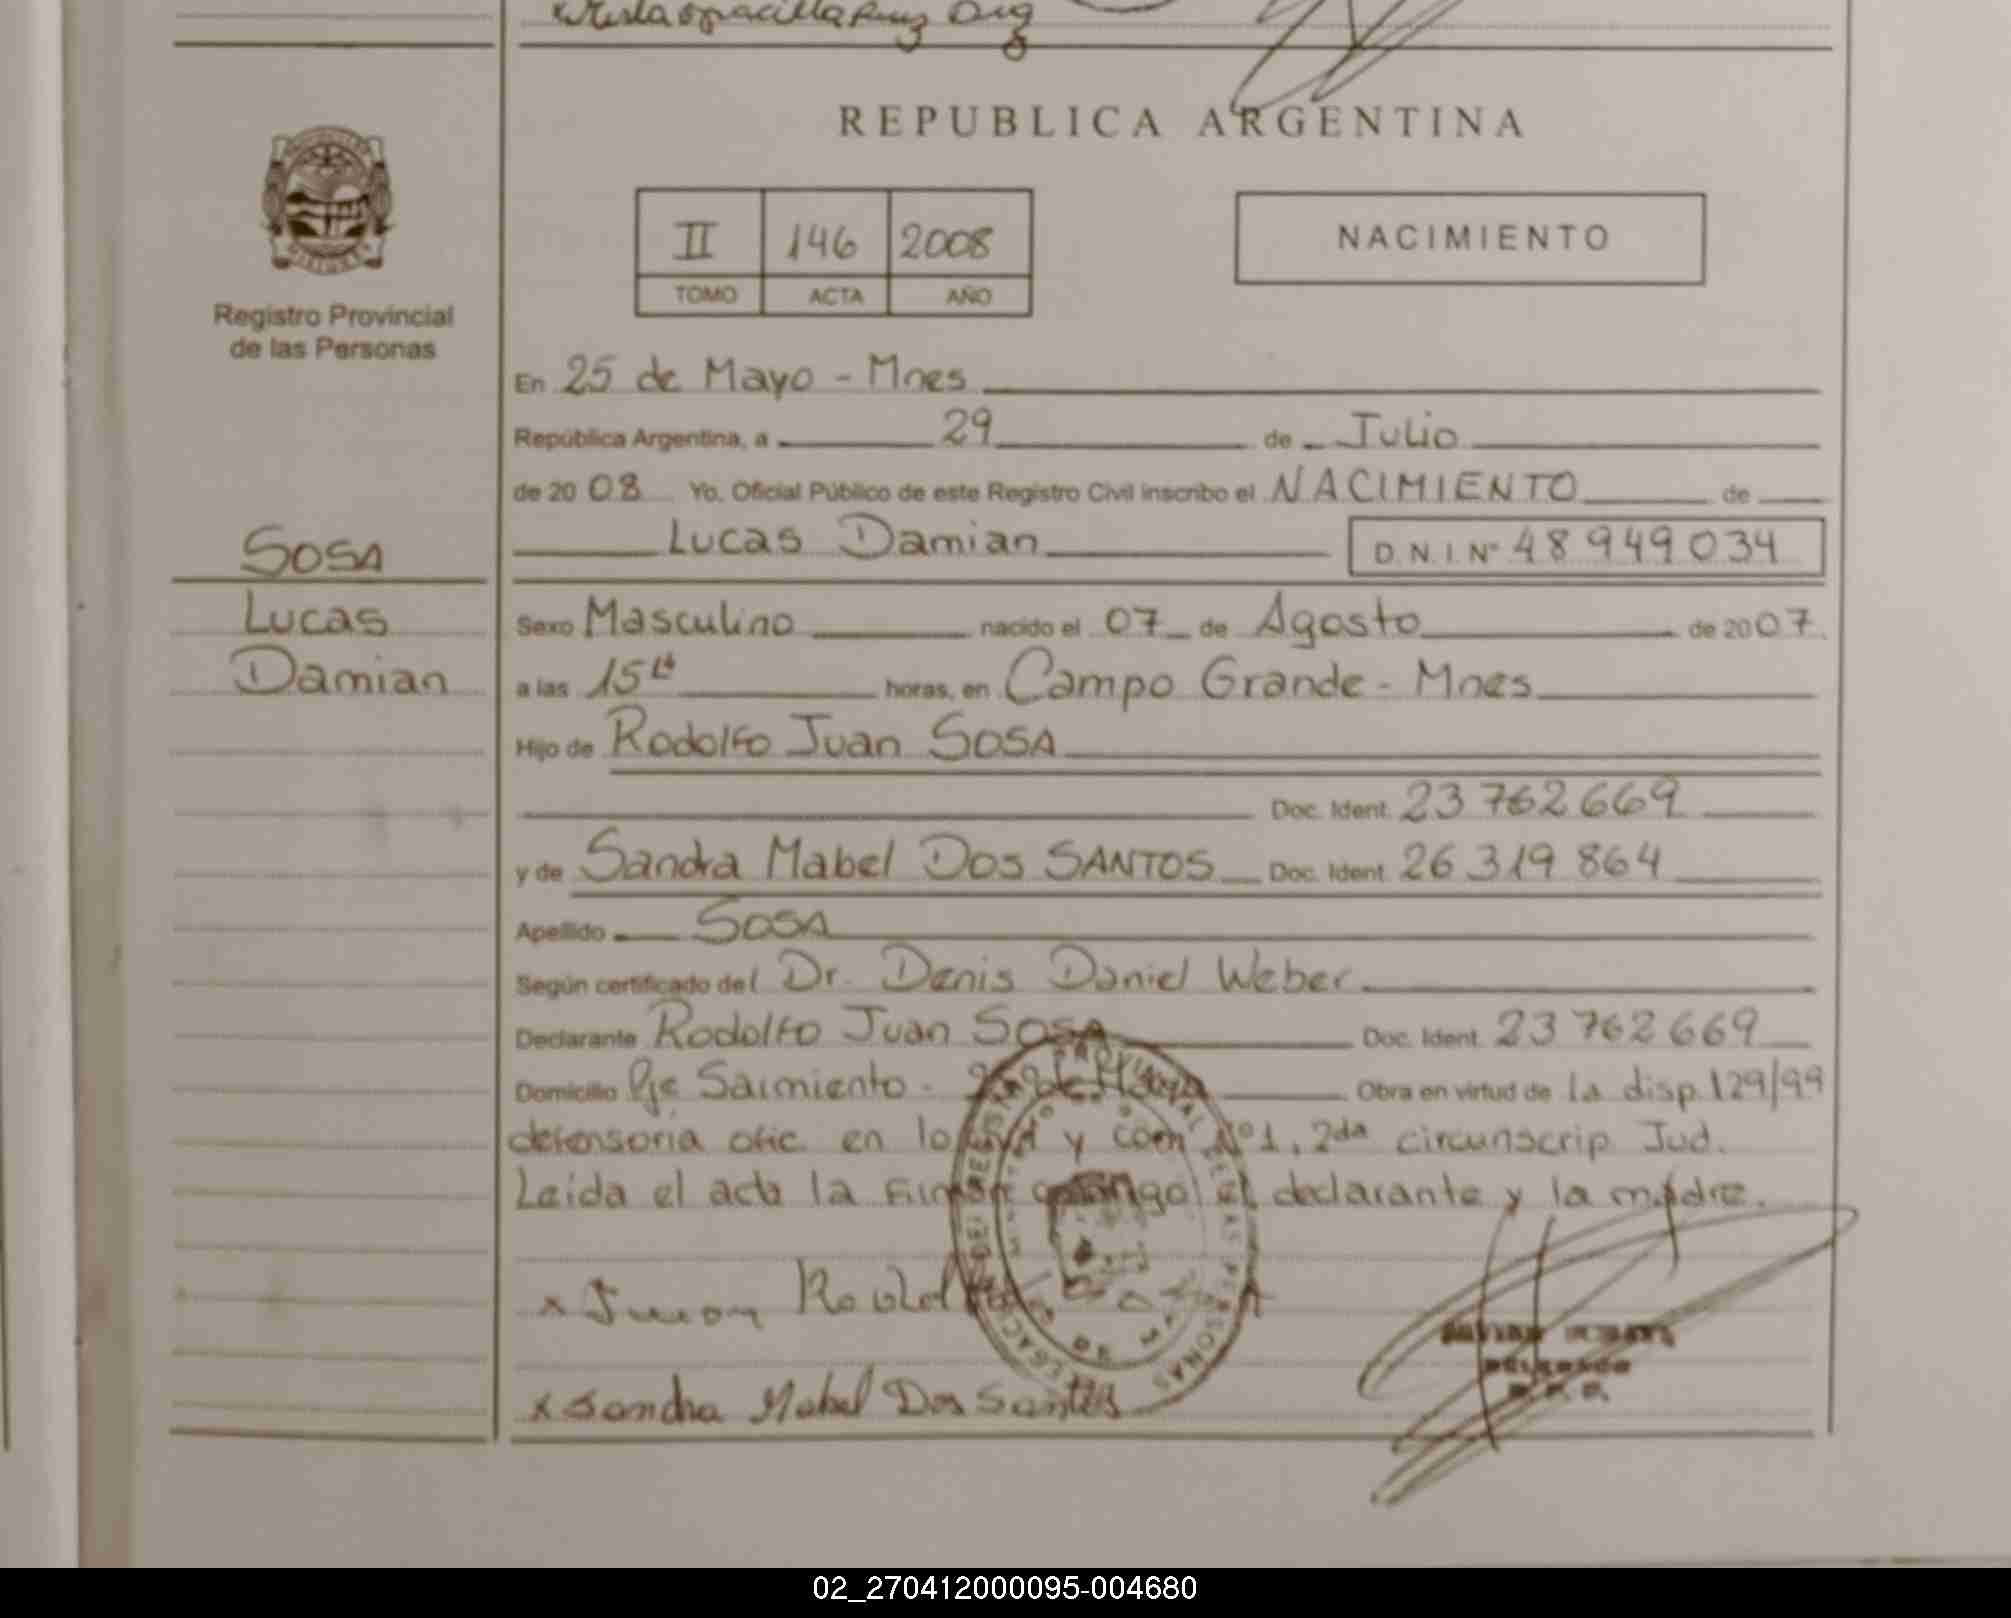 REPUBLICA ARGENTINA
II 146 2008
TOMO ACTA AÑO
NACIMIENTO
Registro Provincial
de las Personas
En 25 de Mayo - Mnes
República Argentina, a 29 de Julio
de 20 08 Yo. Oficial Público de este Registro Civil inscribo el NACIMIENTO de
Lucas Damian D.N.I. Nº 48949034
SOSA
Lucas
Damian
Sexo Masculino nacido el 07 de Agosto de 2007.
a las 15 horas, en Campo Grande - Mnes
Hijo de Rodolfo Juan SOSA
Doc. Ident. 23762669
y de Sandra Mabel DOS SANTOS Doc. Ident. 26319864
Apellido SOSA
Según certificado del Dr. Denis Daniel Weber
Declarante Rodolfo Juan SOSA Doc. Ident. 23762669
Domicilio Pje Sarmiento - 25 de Mayo Obra en virtud de la disp. 129/99
defensoria ofic. en lo y com Nº1, 2da circunscrip Jud.
Leida el acta la conmigo el declarante y la madre.
x Sandra Mabel Dos Santos
02_270412000095-004680